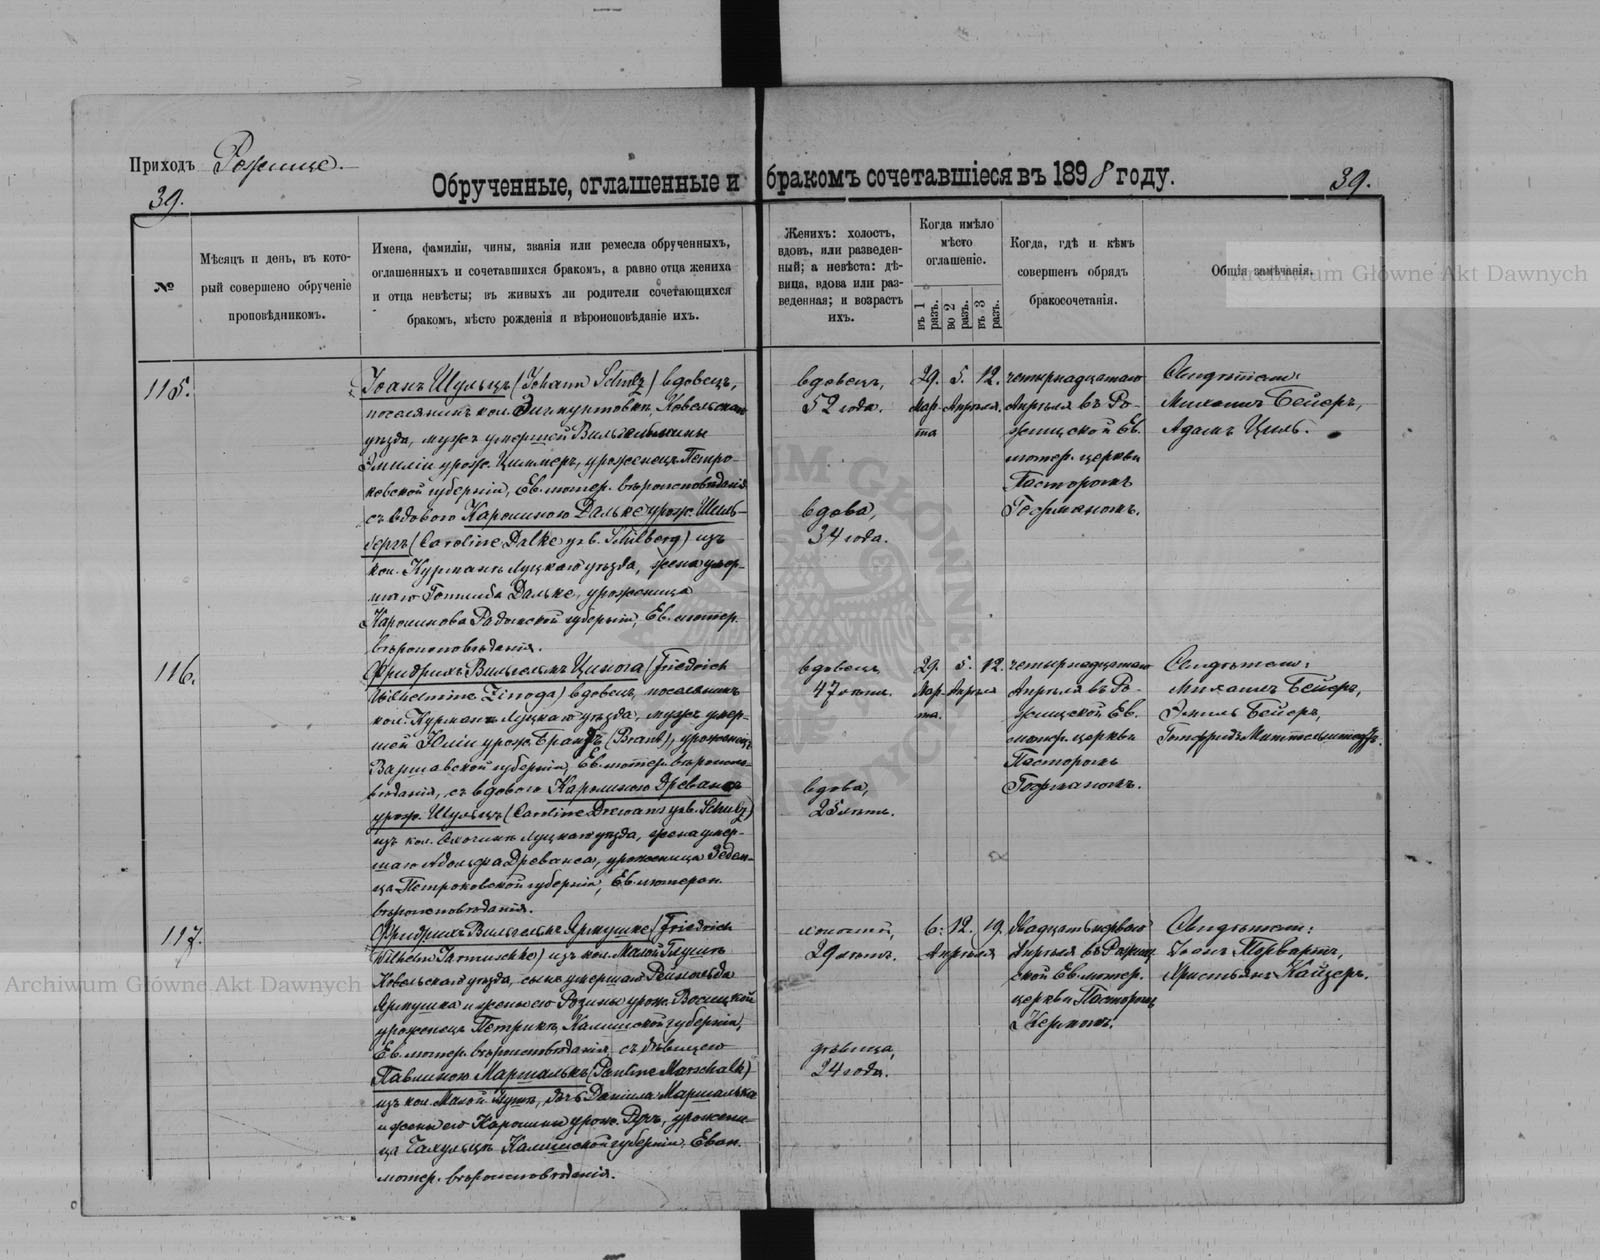 Приходъ Рожище.
39.
Обрученные, оглашенные и бракомъ сочетавшіеся въ 1898 году.
39.
№
Мѣсяцъ и день, въ кото-
рый совершено обрученіе
проповѣдникомъ.
Имена, фамиліи, чины, званія или ремесла обрученныхъ,
оглашенныхъ и сочетавшихся бракомъ, а равно отца жениха
и отца невѣсты; въ живыхъ ли родители сочетающихся
бракомъ, мѣсто рожденія и вѣроисповѣданіе ихъ.
Женихъ: холостъ,
вдовъ, или разведен-
ный; а невѣста: дѣ-
вица, вдова или раз-
веденная; и возрастъ
ихъ.
Когда имѣло
мѣсто
оглашеніе.
въ 1 разъ.
во 2 разъ.
въ 3 разъ.
Когда, гдѣ и кѣмъ
совершенъ обрядъ
бракосочетанія.
Общія замѣчанія.
Archiwum Główne Akt Dawnych
115.
Іоанъ Шульцъ (Johann Schulz) вдовецъ,
поселянинъ кол. Ковельскаго
уѣзда, мужъ умершей Вильгельмины
Эмиліи урож. Циммеръ, уроженецъ Петро-
ковской губерніи, Ев. лютер. вѣроисповѣданія
съ вдовою Каролиною Дальке урож. Шиль-
бергъ (Caroline Dalke geb. Schilberg) изъ
кол. Курманъ Луцкаго уѣзда, жена умер-
шаго Готлиба Дальке, уроженица
Каролинова Радомской губерніи, Ев. лютер.
вѣроисповѣданія.
вдовецъ,
52 года.
вдова,
34 года.
29. 5. 12.
Мар- Апрѣля.
та
четырнадцатаго
Апрѣля въ Ро-
жищской Ев.
лютер. церкви
Пасторомъ
Гофманомъ.
Свидѣтели:
Михаилъ Бейеръ,
Адамъ Циль.
116.
Фридрихъ Вильгельмъ Цинога (Friedrich
Wilhelmine Zinoga) вдовецъ, поселянинъ
кол. Курманъ Луцкаго уѣзда, мужъ умер-
шей Юліи урож. Брантъ (Brant), уроженецъ
Варшавской губерніи, Ев. лютер. вѣроиспо-
вѣданія, съ вдовою Каролиною Древансъ
урож. Шульцъ (Caroline Drewans geb. Schulz)
изъ кол. Луцкаго уѣзда, жена умер-
шаго Адольфа Древанса, уроженица
Петроковской губерніи, Ев. лютеран.
вѣроисповѣданія.
вдовецъ
47 лѣтъ.
вдова,
25 лѣтъ.
29. 5. 12.
Мар- Апрѣля
та.
четырнадцатаго
Апрѣля въ Ро-
жищской Ев.
лютер. церкви
Пасторомъ
Гофманомъ.
Свидѣтели:
Михаилъ Бейеръ,
Эмиль Бейеръ,
Готфридъ Миттельштедтъ.
117.
Фридрихъ Вильгельмъ Ярмушке (Friedrich
Wilhelm Jarmuschke) изъ кол. Малой Глушъ
Ковельскаго уѣзда, сынъ умершаго Рейнольда
Ярмушка и жены его Розины урож.
уроженецъ Петрикъ, Калишской губерніи,
Ев. лютер. вѣроисповѣданія, съ дѣвицею
Павлиною Маршалькъ (Pauline Marschalk)
изъ кол. Малой Глушъ, дочь Даніила Маршалька
и жены его Каролины урож. урожени-
ца Калишской губерніи. Еван.
лютер. вѣроисповѣданія.
холостой,
29 лѣтъ.
дѣвица,
24 года.
6. 12. 19.
Апрѣля
двадцать перваго
Апрѣля въ Рожищ-
ской Ев. лютер.
церкви Пасторомъ
Керномъ.
Свидѣтели:
Іоанъ Морвартъ,
Христьянъ Кайзеръ.
Archiwum Główne Akt Dawnych